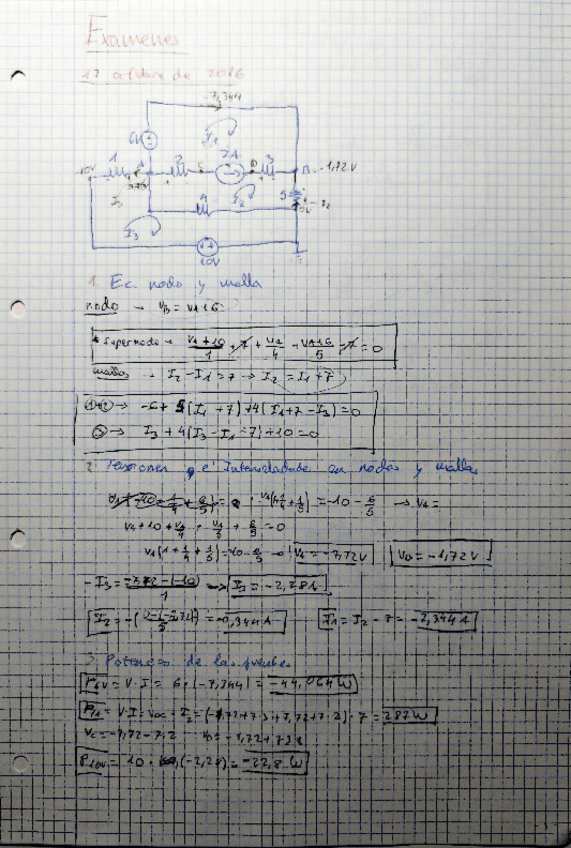 Examenes
17 octubre de 2016
-7,344
6V
I1
10V
1
A
2
C
7A
D
3
B -1,72V
I2
5
4
I3
10V
1. Ec. nodo y malla
nodo → VB = VA+6
* Supernodo → (VA+10)/1 + 7 + VA/4 + (VA+6)/5 - 7 = 0
mallas → I2 - I1 = 7 → I2 = I1 + 7
①+② → -6 + 5(I1 + 7) + 4(I1 + 7 - I3) = 0
③ → I3 + 4(I3 - I1 - 7) + 10 = 0
2. Tensiones e Intensidades en nodos y mallas
VA(1+1/4+1/5) = -10 - 6/5 → VA =
VA + 10 + VA/4 + VA/5 + 6/5 = 0
VA(1 + 1/4 + 1/5) = -10 - 6/5 → VA = -7,72V VB = -1,72V
-I3 = (-7,72 - (-10))/1 → I3 = -2,28A
I2 = -(0-(-1,72))/5 = -0,344A I1 = I2 - 7 = -7,344A
3. Potencias de las fuentes
P6V = V·I = 6·(-7,344) = -44,064W
P7A = V·I = VDC · I2 = (-1,72+7·3+7,72+7·2)·7 = 287W
VC = -7,72-7·2 VD = -1,72+7·3
P10V = 10·(-2,28) = -22,8W